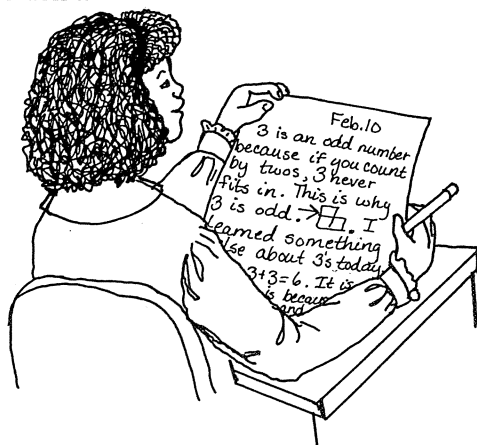 Feb.10
3 is an odd number
because if you count
by twos, 3 never
fits in. This is why
3 is odd. → . I
learned something
lse about 3's today
3+3=6. It is
is becau
and